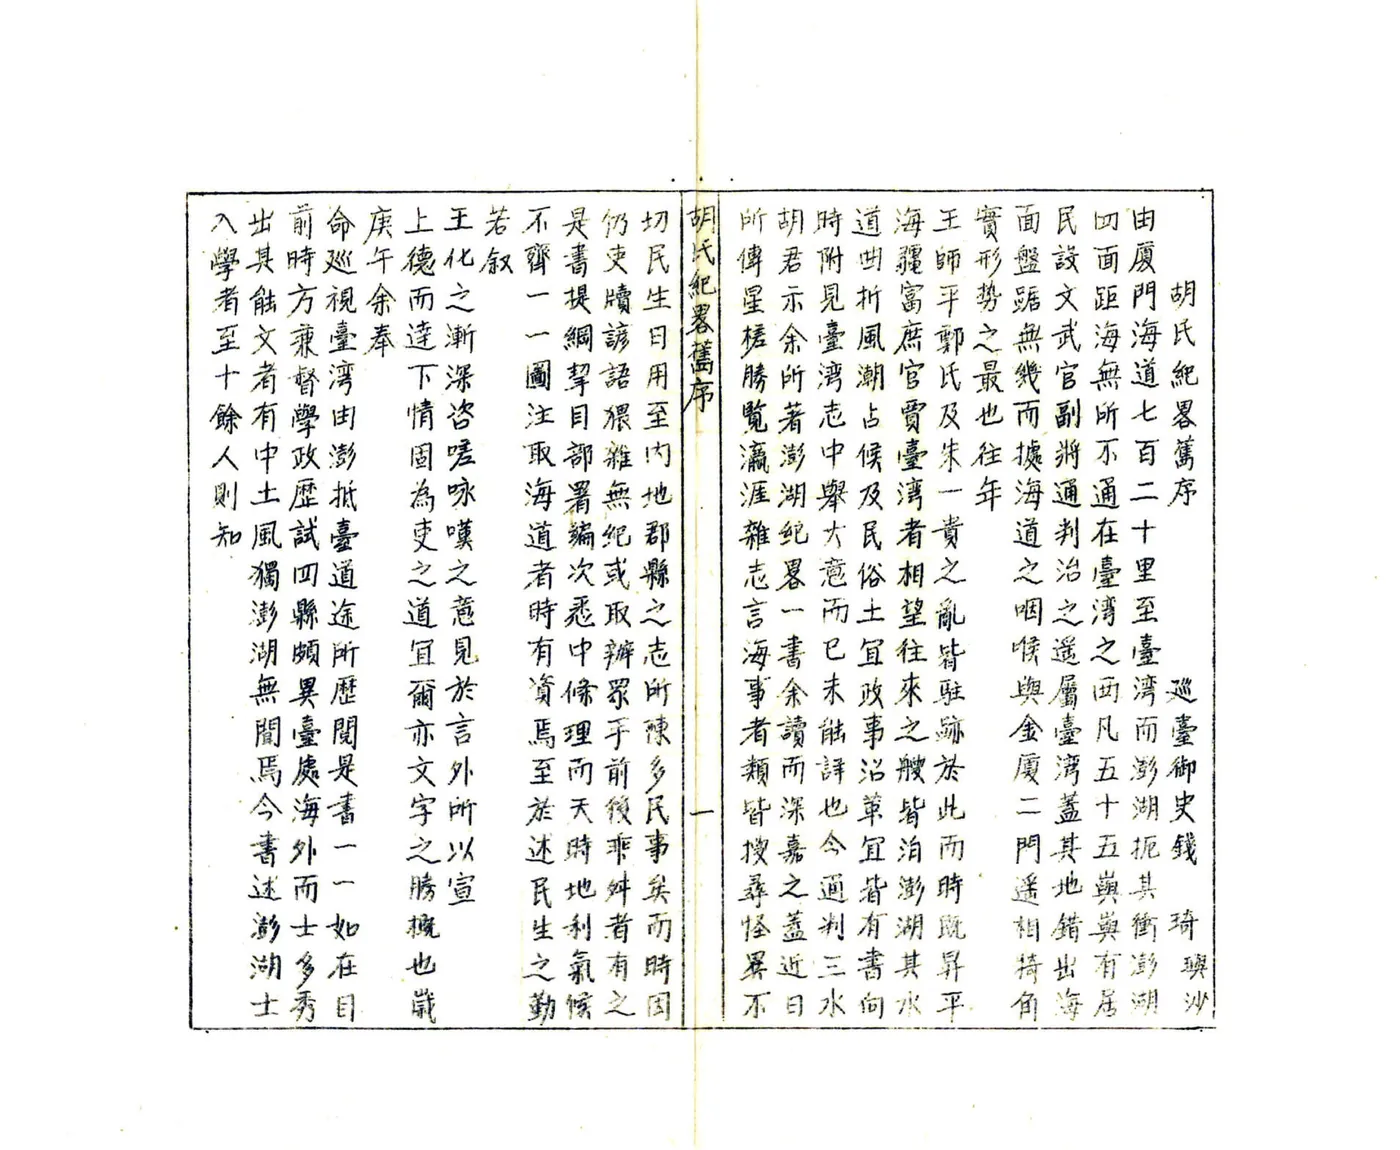 胡氏紀畧舊序
巡臺御史錢 琦 璵沙
由厦門海道七百二十里至臺湾而澎湖扼其衝澎湖
四面距海無所不通在臺湾之西凡五十五嶼嶼有居
民設文武官副將通判治之遥屬臺湾蓋其地錯出海
面盤踞無幾而據海道之咽喉與金厦二門遥相犄角
實形势之最也往年
王師平鄭氏及朱一貴之亂皆駐跡於此而時既昇平
海疆富庶官賈臺湾者相望往來之艘皆泊澎湖其水
道曲折風潮占候及民俗土宜政事沿革宜皆有書向
時附見臺湾志中舉大意而已未能詳也今通判三水
胡君示余所著澎湖紀畧一書余讀而深嘉之蓋近日
所傳星槎勝覧瀛涯雜志言海事者類皆搜尋怪異不
胡氏紀畧舊序
一
切民生日用至内地郡縣之志所陳多民事矣而時因
仍吏牘諺語猥雜無紀或取辦眾手前後乖舛者有之
是書提綱挈目部署編次悉中條理而天時地利氣候
不齊一一圖注取海道者時有資焉至於述民生之勤
若叙
王化之漸深咨嗟咏嘆之意見於言外所以宣
上德而逹下情固為吏之道宜爾亦文字之勝概也歲
庚午余奉
命巡視臺湾由澎抵臺道途所歷閱是書一一如在目
前時方兼督學政歷試四縣頗異臺處海外而士多秀
出其能文者有中土風獨澎湖無聞焉今書述澎湖士
入學者至十餘人則知